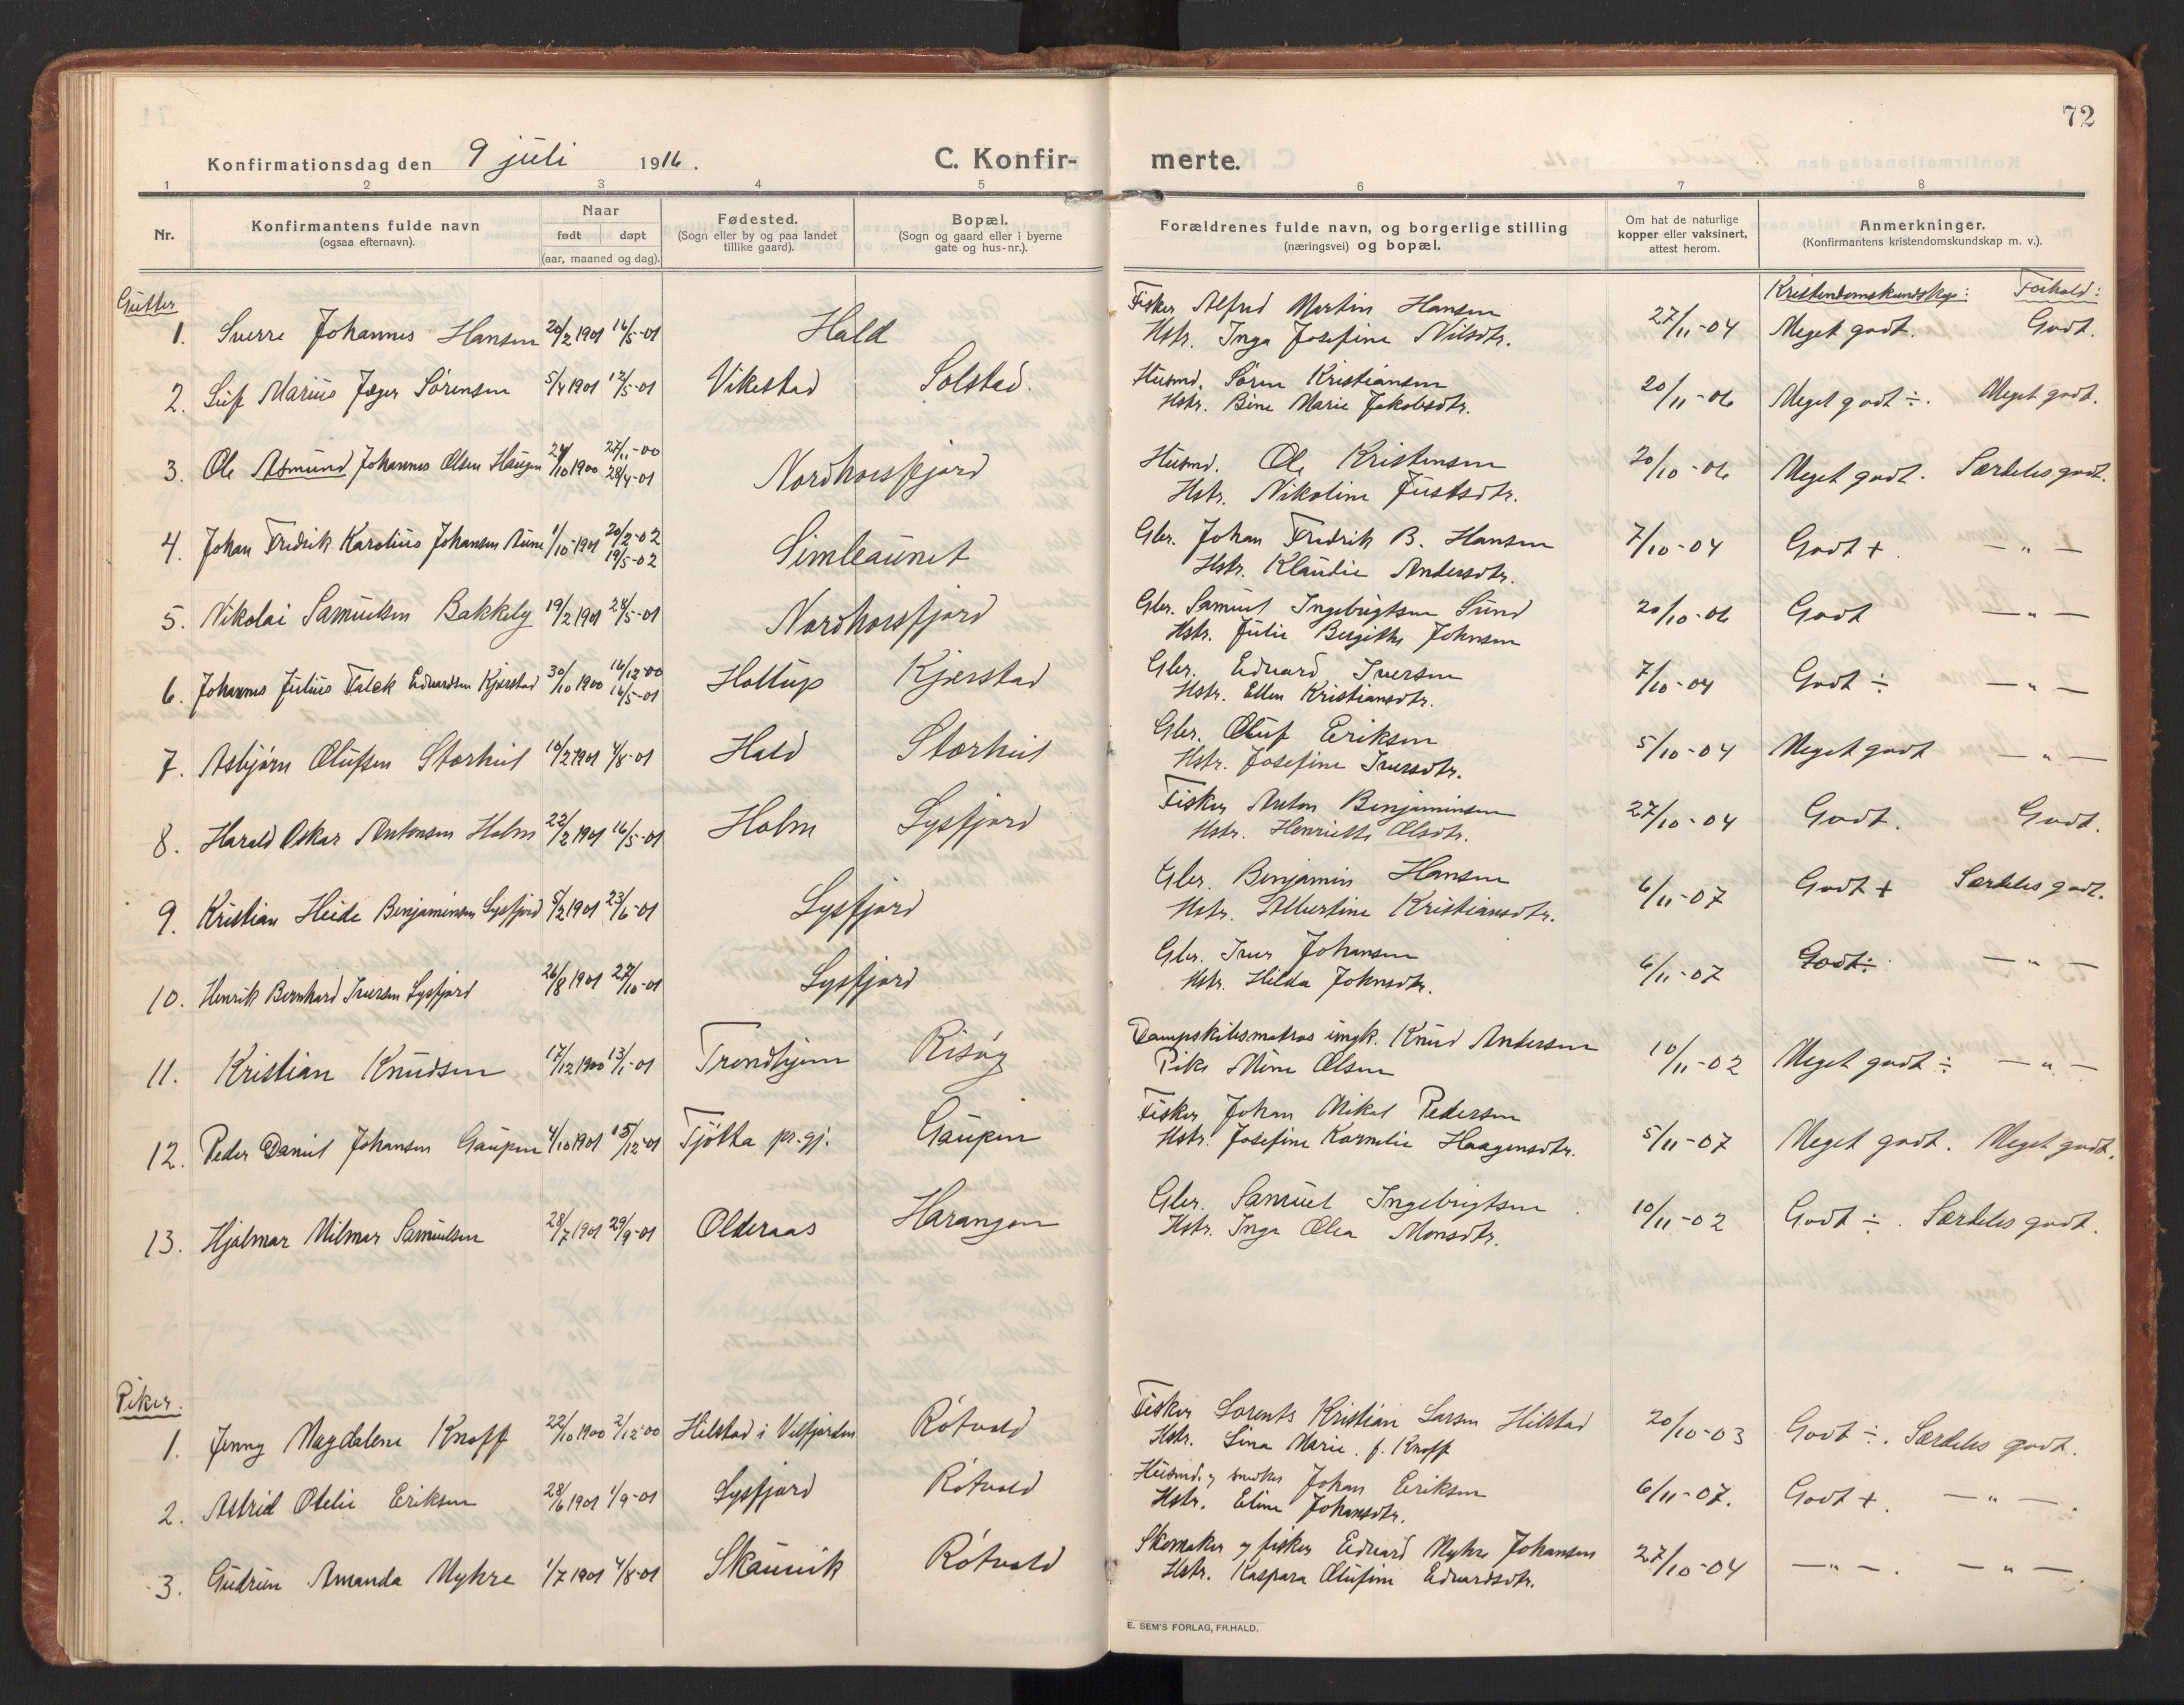 72
Konfirmationsdag den 9 juli 1916. C. Konfirmerte.
1 2 3 4 5 6 7 8
Nr. Konfirmantens fulde navn (ogsaa efternavn). Naar født døpt (aar, maaned og dag). Fødested. (Sogn eller by og paa landet tillike gaard). Bopæl. (Sogn og gaard eller i byerne gate og hus-nr.). Forældrenes fulde navn, og borgerlige stilling (næringsvei) og bopæl. Om hat de naturlige kopper eller vaksinert, attest herom. Anmerkninger. (Konfirmantens kristendomskundskap m. v.).
Gutter Kristendomskundskap: Forhold:
1. Sverre Johannes Hansen 20/2 1901 16/5-01 Hald Fisker Alfred Martin Hansen 27/11-04 Meget godt. Godt.
Hstr. Inga Josefine Nilsdtr.
2. Leif Marius Jæger Sørensen 5/4 1901 12/5-01 Vikestad Solstad. Husmd. Søren Kristiansen 20/11-06 Meget godt ÷. Meget godt.
Hstr. Bine Marie Jakobsdtr.
3. Ole Asmund Johannes Olsen Haugen 24/10 1900 27/11-00 28/4-01 Nordhorsfjord Husmd. Ole Kristensen 20/10-06 Meget godt. Særdeles godt.
Hstr. Nikoline Justsdtr.
4. Johan Fredrik Karolius Johansen Aune 1/10-1901 20/2-02 19/5-02 Simleaunet Gbr. Johan Fredrik B. Hansen 7/10-04 Godt + — " —
Hstr. Klaudie Andersdtr.
5. Nikolai Samuelsen Bakkely 19/2 1901 28/5-01 Nordhorsfjord Gbr. Samuel Ingebrigtsen Sund 20/10-06 Godt — " —
Hstr. Julie Bergitte Johnsen
6. Johannes Julius Falck Edvardsen Kjerstad 30/10 1900 16/12-00 16/5-01 Hottup Kjerstad Gbr. Edvard Iversen 7/10-04 Godt ÷ — " —
Hstr. Ellen Kristiansdtr.
7. Asbjørn Olufsen Storheil 10/2 1901 4/8-01 Hald Storheil Gbr. Oluf Eriksen 5/10-04 Meget godt — " —
Hstr. Josefine Iversdtr.
8. Harald Oskar Antonsen Holm 22/2 1901 16/5-01 Holm Lysfjord Fisker Anton Benjaminsen 27/10-04 Godt. Godt.
Hstr. Henriette Olsdtr.
9. Kristian Heide Benjaminsen Lysfjord 5/2 1901 23/6-01 Lysfjord Gbr. Benjamin Hansen 6/11-07 Godt + Særdeles godt.
Hstr. Albertine Kristiansdtr.
10. Henrik Bernhard Iversen Lysfjord 26/8 1901 27/10-01 Lysfjord Gbr. Iver Johansen 6/11-07 Godt ÷ — " —
Hstr. Hilda Johnsdtr.
11. Kristian Knudsen 17/12 1900 13/1-01 Trondhjem Risøy Dampskibsmatros ungk. Knud Andersen 10/11-02 Meget godt ÷ — " —
Pike Mina Olsen
12. Peder Daniel Johansen Gaupen 4/10 1901 15/12-01 Tjøtta pr.gj. Gaupen Fisker Johan Mikal Pedersen 5/11-07 Meget godt. Meget godt.
Hstr. Josefine Kornelie Haagensdtr.
13. Hjalmar Hilmar Samuelsen 28/7 1901 29/9-01 Olderaas Harangen Gbr. Samuel Ingebrigtsen 10/11-02 Godt ÷. Særdeles godt.
Hstr. Inga Olea Monsdtr.
Piker.
1. Jenny Magdalene Knoff 22/10 1900 2/12-00 Hilstad i Velfjorden Røtvold Fisker Lorents Kristian Larsen Hilstad 20/10-03 Godt ÷. Særdeles godt.
Hstr. Lina Marie f. Knoff
2. Astrid Otelie Eriksen 28/6 1901 1/9-01 Lysfjord Røtvold Husmd. og snedker Johan Eriksen 6/11-07. Godt +. — " —.
Hstr. Eline Johansdtr.
3. Gudrun Amanda Myhre 1/7 1901 4/8-01 Skaunvik Røtvold Skomaker og fisker Edvard Myhre Johansen 27/10-04 — " —. — " —.
Hstr. Kaspara Olufine Edvardsdtr.
E. SEM'S FORLAG, FR.HALD.